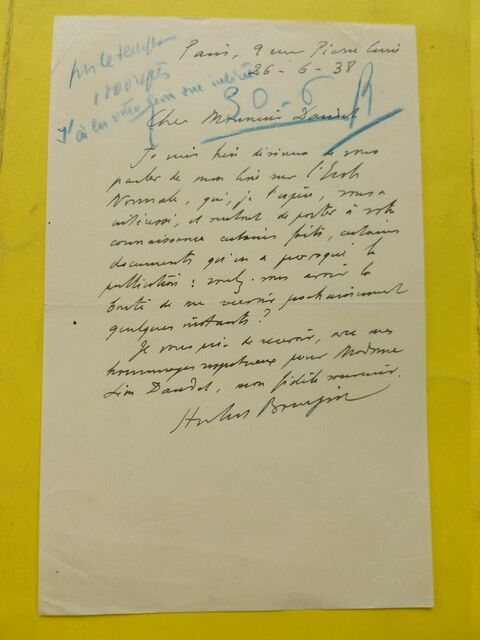 Paris, 9 rue Pierre Curie
26-6-38
1000 regrets
J'ai lu votre livre avec intérêt
30-6 R
Cher Monsieur Daudet
Je suis très désireux de vous
parler de mon livre sur l'Ecole
Normale, qui, je l'espère, vous a
intéressé, et surtout de porter à votre
connaissance certains faits, certains
documents qu'en a provoqué la
publication : voulez-vous avoir la
bonté de me recevoir prochainement
quelques instants?
Je vous prie de recevoir, avec mes
hommages respectueux pour Madame
Léon Daudet, mon fidèle souvenir.
Hubert Bourgin